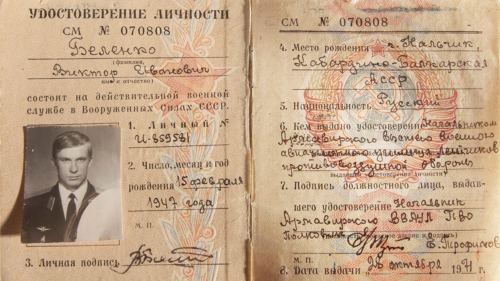 УДОСТОВЕРЕНИЕ ЛИЧНОСТИ
СМ № 070808
Беленко
(фамилия,
Виктор Иванович
имя и отчество)
состоит на действительной военной
службе в Вооруженных Силах СССР.
1. Личный №
2. Число, месяц и год
рождения 15 февраля
1947 года
М. П.
3. Личная подпись
СМ № 070808
4. Место рождения г. Нальчик,
Кабардино-Балкарская
АССР
5. Национальность Русский
6. Кем выдано удостоверение Начальником
Армавирского высшего военного
авиационного училища лётчиков
противовоздушной обороны
7. Подпись должностного лица, выдав-
шего удостоверение Начальник
Армавирского ВВАУЛ ПВО
Полковник Е. Трофимов
М. П.
8. Дата выдачи 28 октября 1971 г.